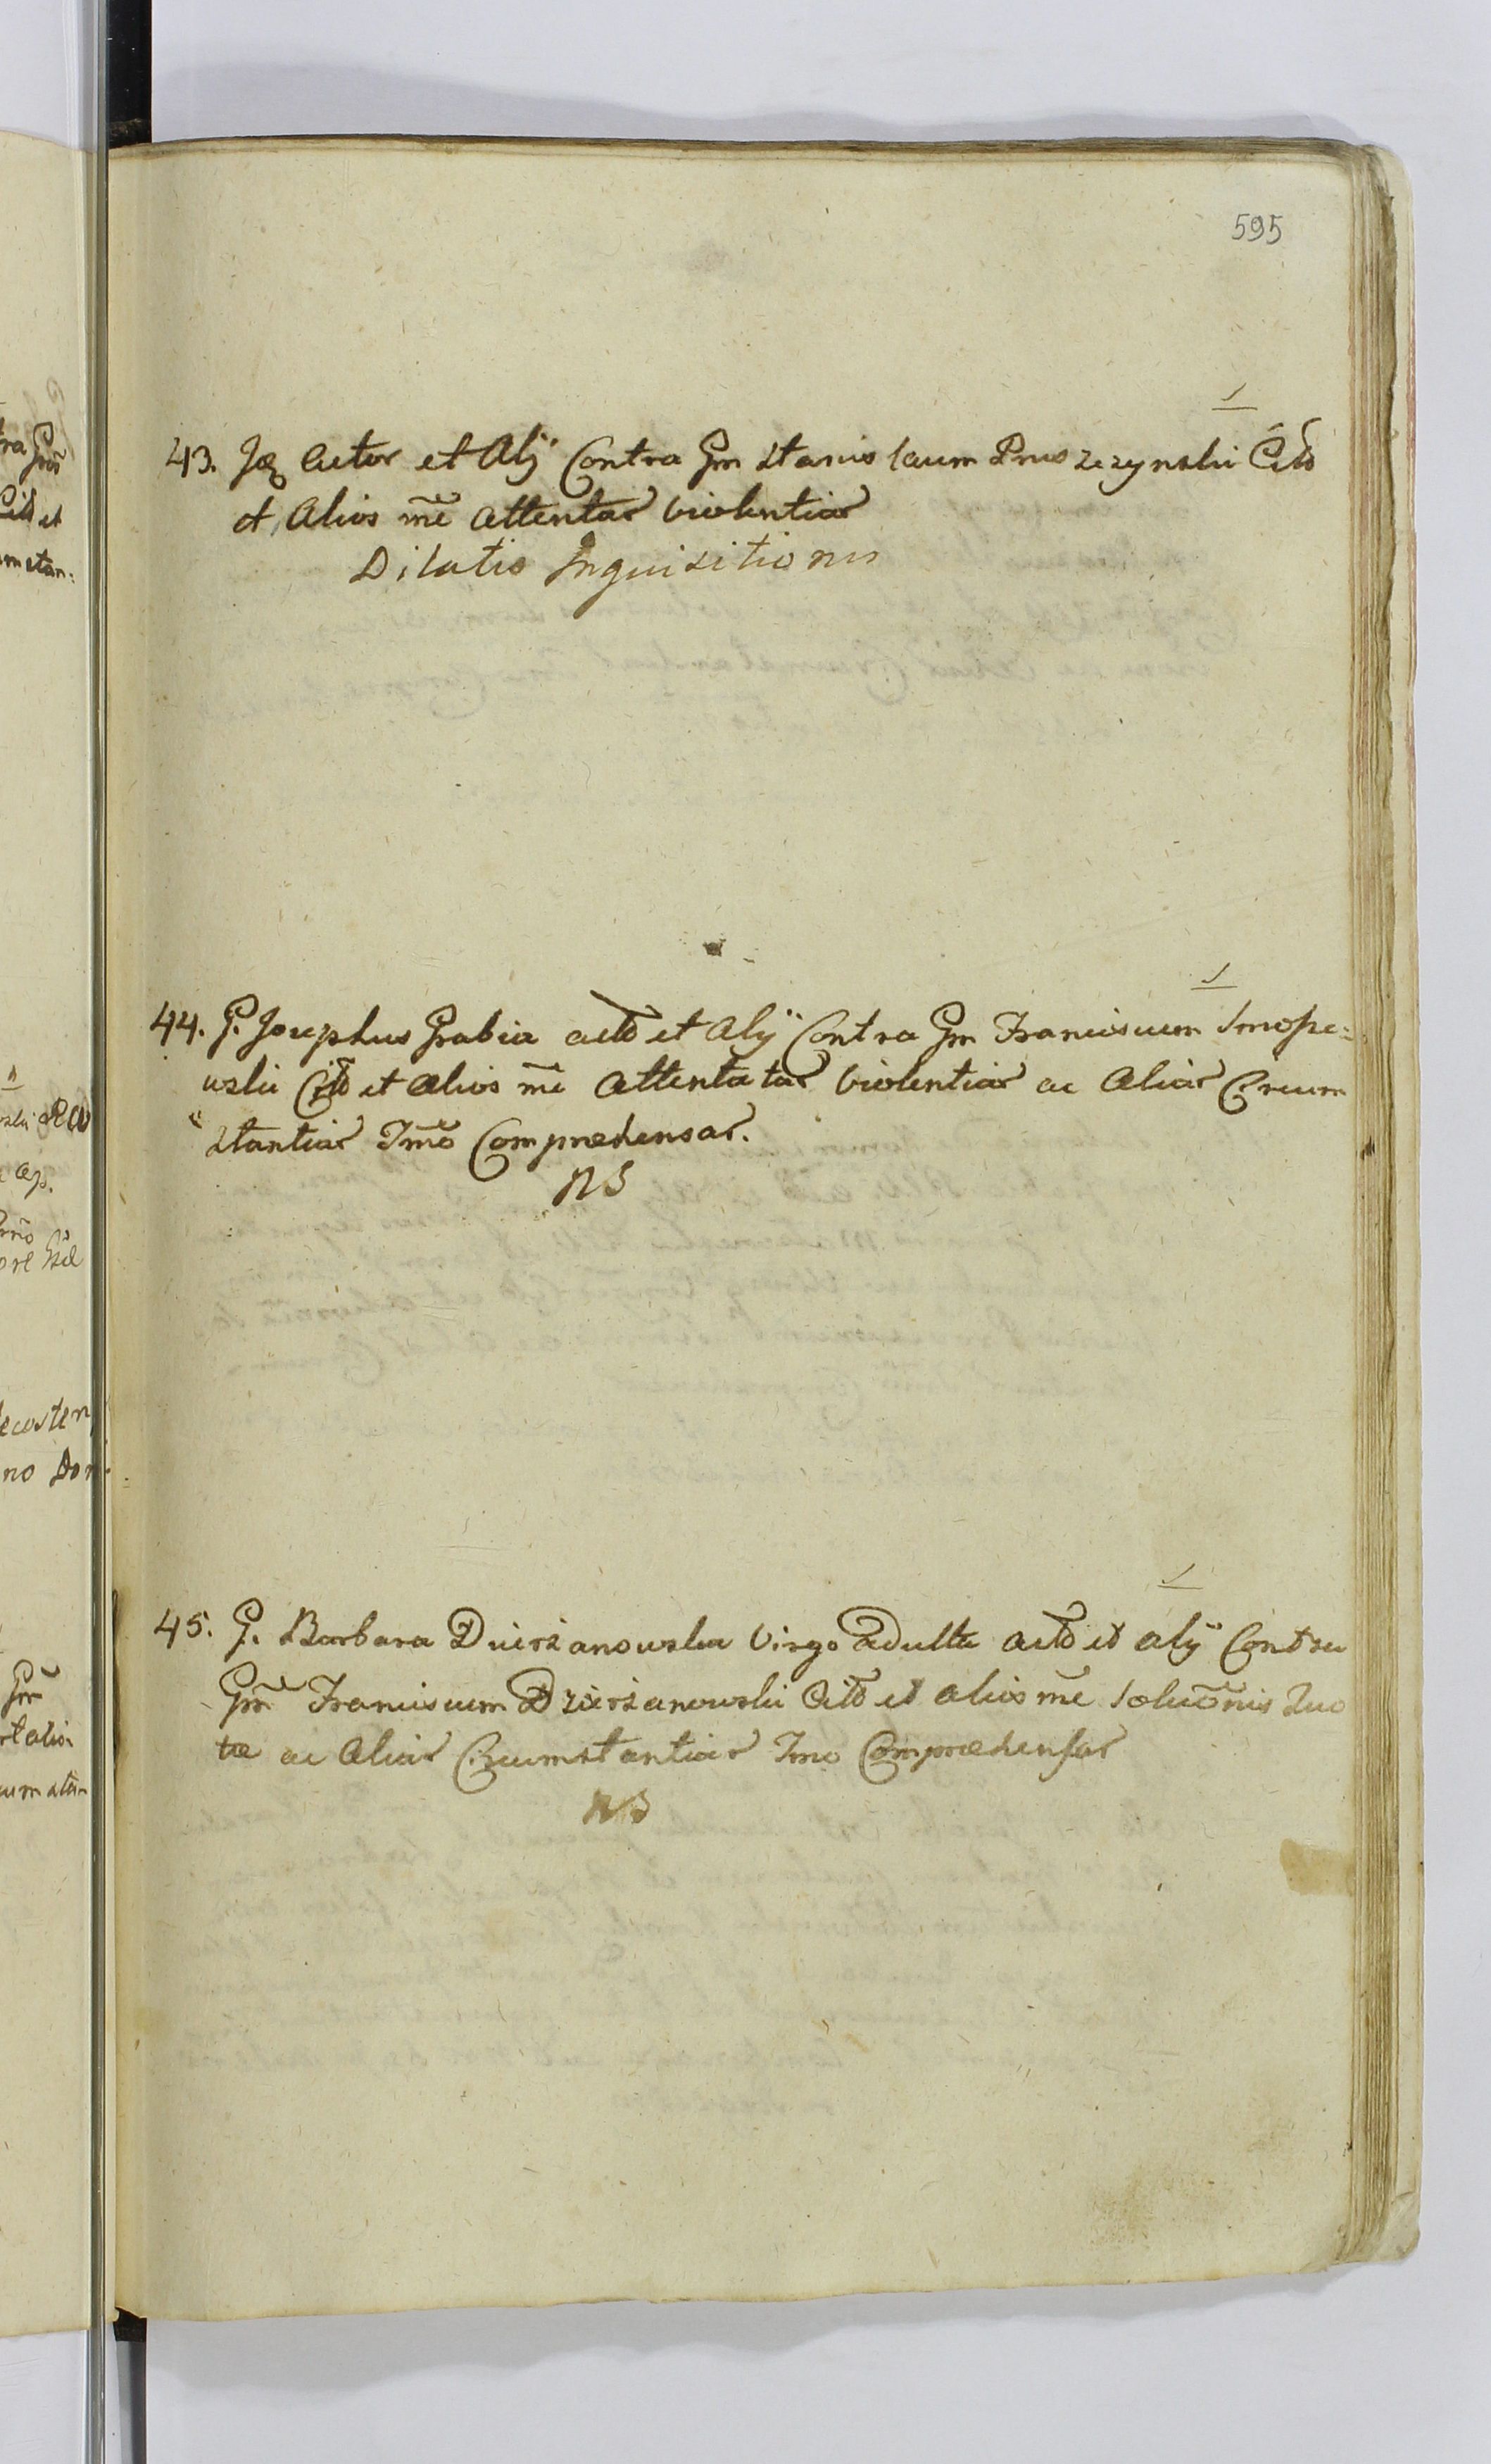 595
43. Jdę Actor et Alij Contra Gm Stanislaum Pruszczynski Citõ
et Alios mẽ attentas violentias
Dilatio Inquisitionis
44. G. Josephus Grabia actõ et Alij Contra Gm Franciscum Smope-
wski Citõ et alios mẽ attentatas violentias ac alias Circum
stantias Jmõ Comprehensas.
NS
45. G. Barbara Dzierzanowska Virgo adulta actõ et alij Contra
Gm̃ Franciscum Dzierzanowski Citõ et alios mẽ Soluõnis quo
tæ ac alias Circumstantias Jmo Compraehensas
NS